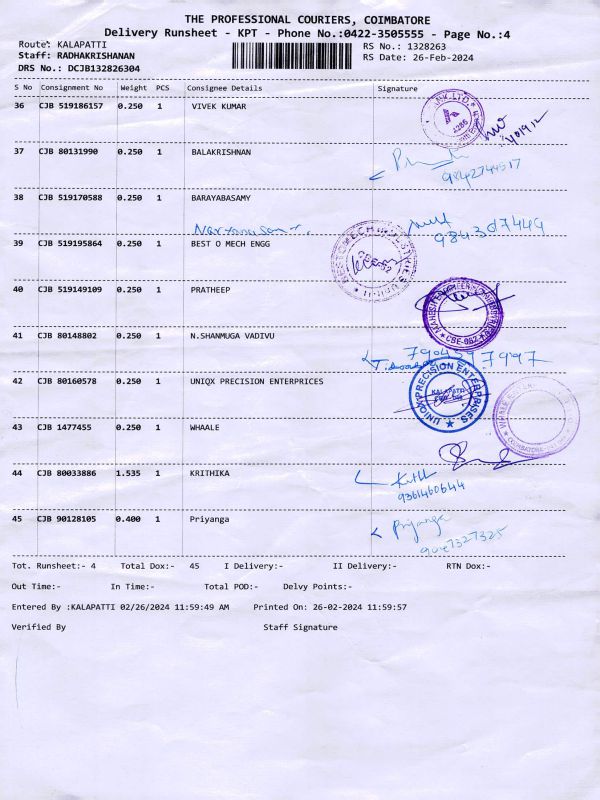 THE PROFESSIONAL COURIERS, COIMBATORE
Delivery Runsheet - KPT - Phone No.:0422-3505555 - Page No.:4
Route: KALAPATTI
RS No.: 1328263
Staff: RADHAKRISHANAN
RS Date: 26-Feb-2024
DRS No.: DCJB132826304
S No Consignment No Weight PCS Consignee Details Signature
36 CJB 519186157 0.250 1 VIVEK KUMAR
37 CJB 80131990 0.250 1 BALAKRISHNAN
9842744517
38 CJB 519170588 0.250 1 BARAYABASAMY
Narayanasamy.
9843607449
39 CJB 519195864 0.250 1 BEST O MECH ENGG
40 CJB 519149109 0.250 1 PRATHEEP
CBE-062
41 CJB 80148802 0.250 1 N.SHANMUGA VADIVU
7904597997
42 CJB 80160578 0.250 1 UNIQX PRECISION ENTERPRICES
UNIQX PRECISION ENTERPRISES
KALAPATTI
43 CJB 1477455 0.250 1 WHAALE
44 CJB 80033886 1.535 1 KRITHIKA
9361460644
45 CJB 90128105 0.400 1 Priyanga
Priyanga
Tot. Runsheet:- 4 Total Dox:- 45 I Delivery:- II Delivery:- RTN Dox:-
Out Time:- In Time:- Total POD:- Delvy Points:-
Entered By :KALAPATTI 02/26/2024 11:59:49 AM Printed On: 26-02-2024 11:59:57
Verified By Staff Signature